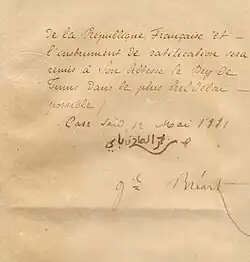 de la République Française et
l'instrument de ratification sera
remis à Son Altesse le Bey de
Tunis dans le plus bref délai
possible.
Casr Saïd, 12 Mai 1881
Bréart